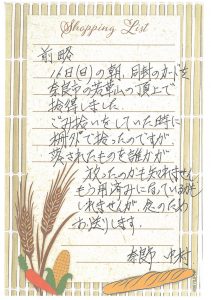 Shopping List
前略
16日(日)の朝、同封のカードを
奈良市の若草山の頂上で
拾得しました。
ごみ拾いをしていた時に
柵外で拾ったのですが、
盗されたものを誰かが
放ったのかも知れません。
もう用済みになっているかも
しれませんが、念のため
お送りします。
奈良市 中村